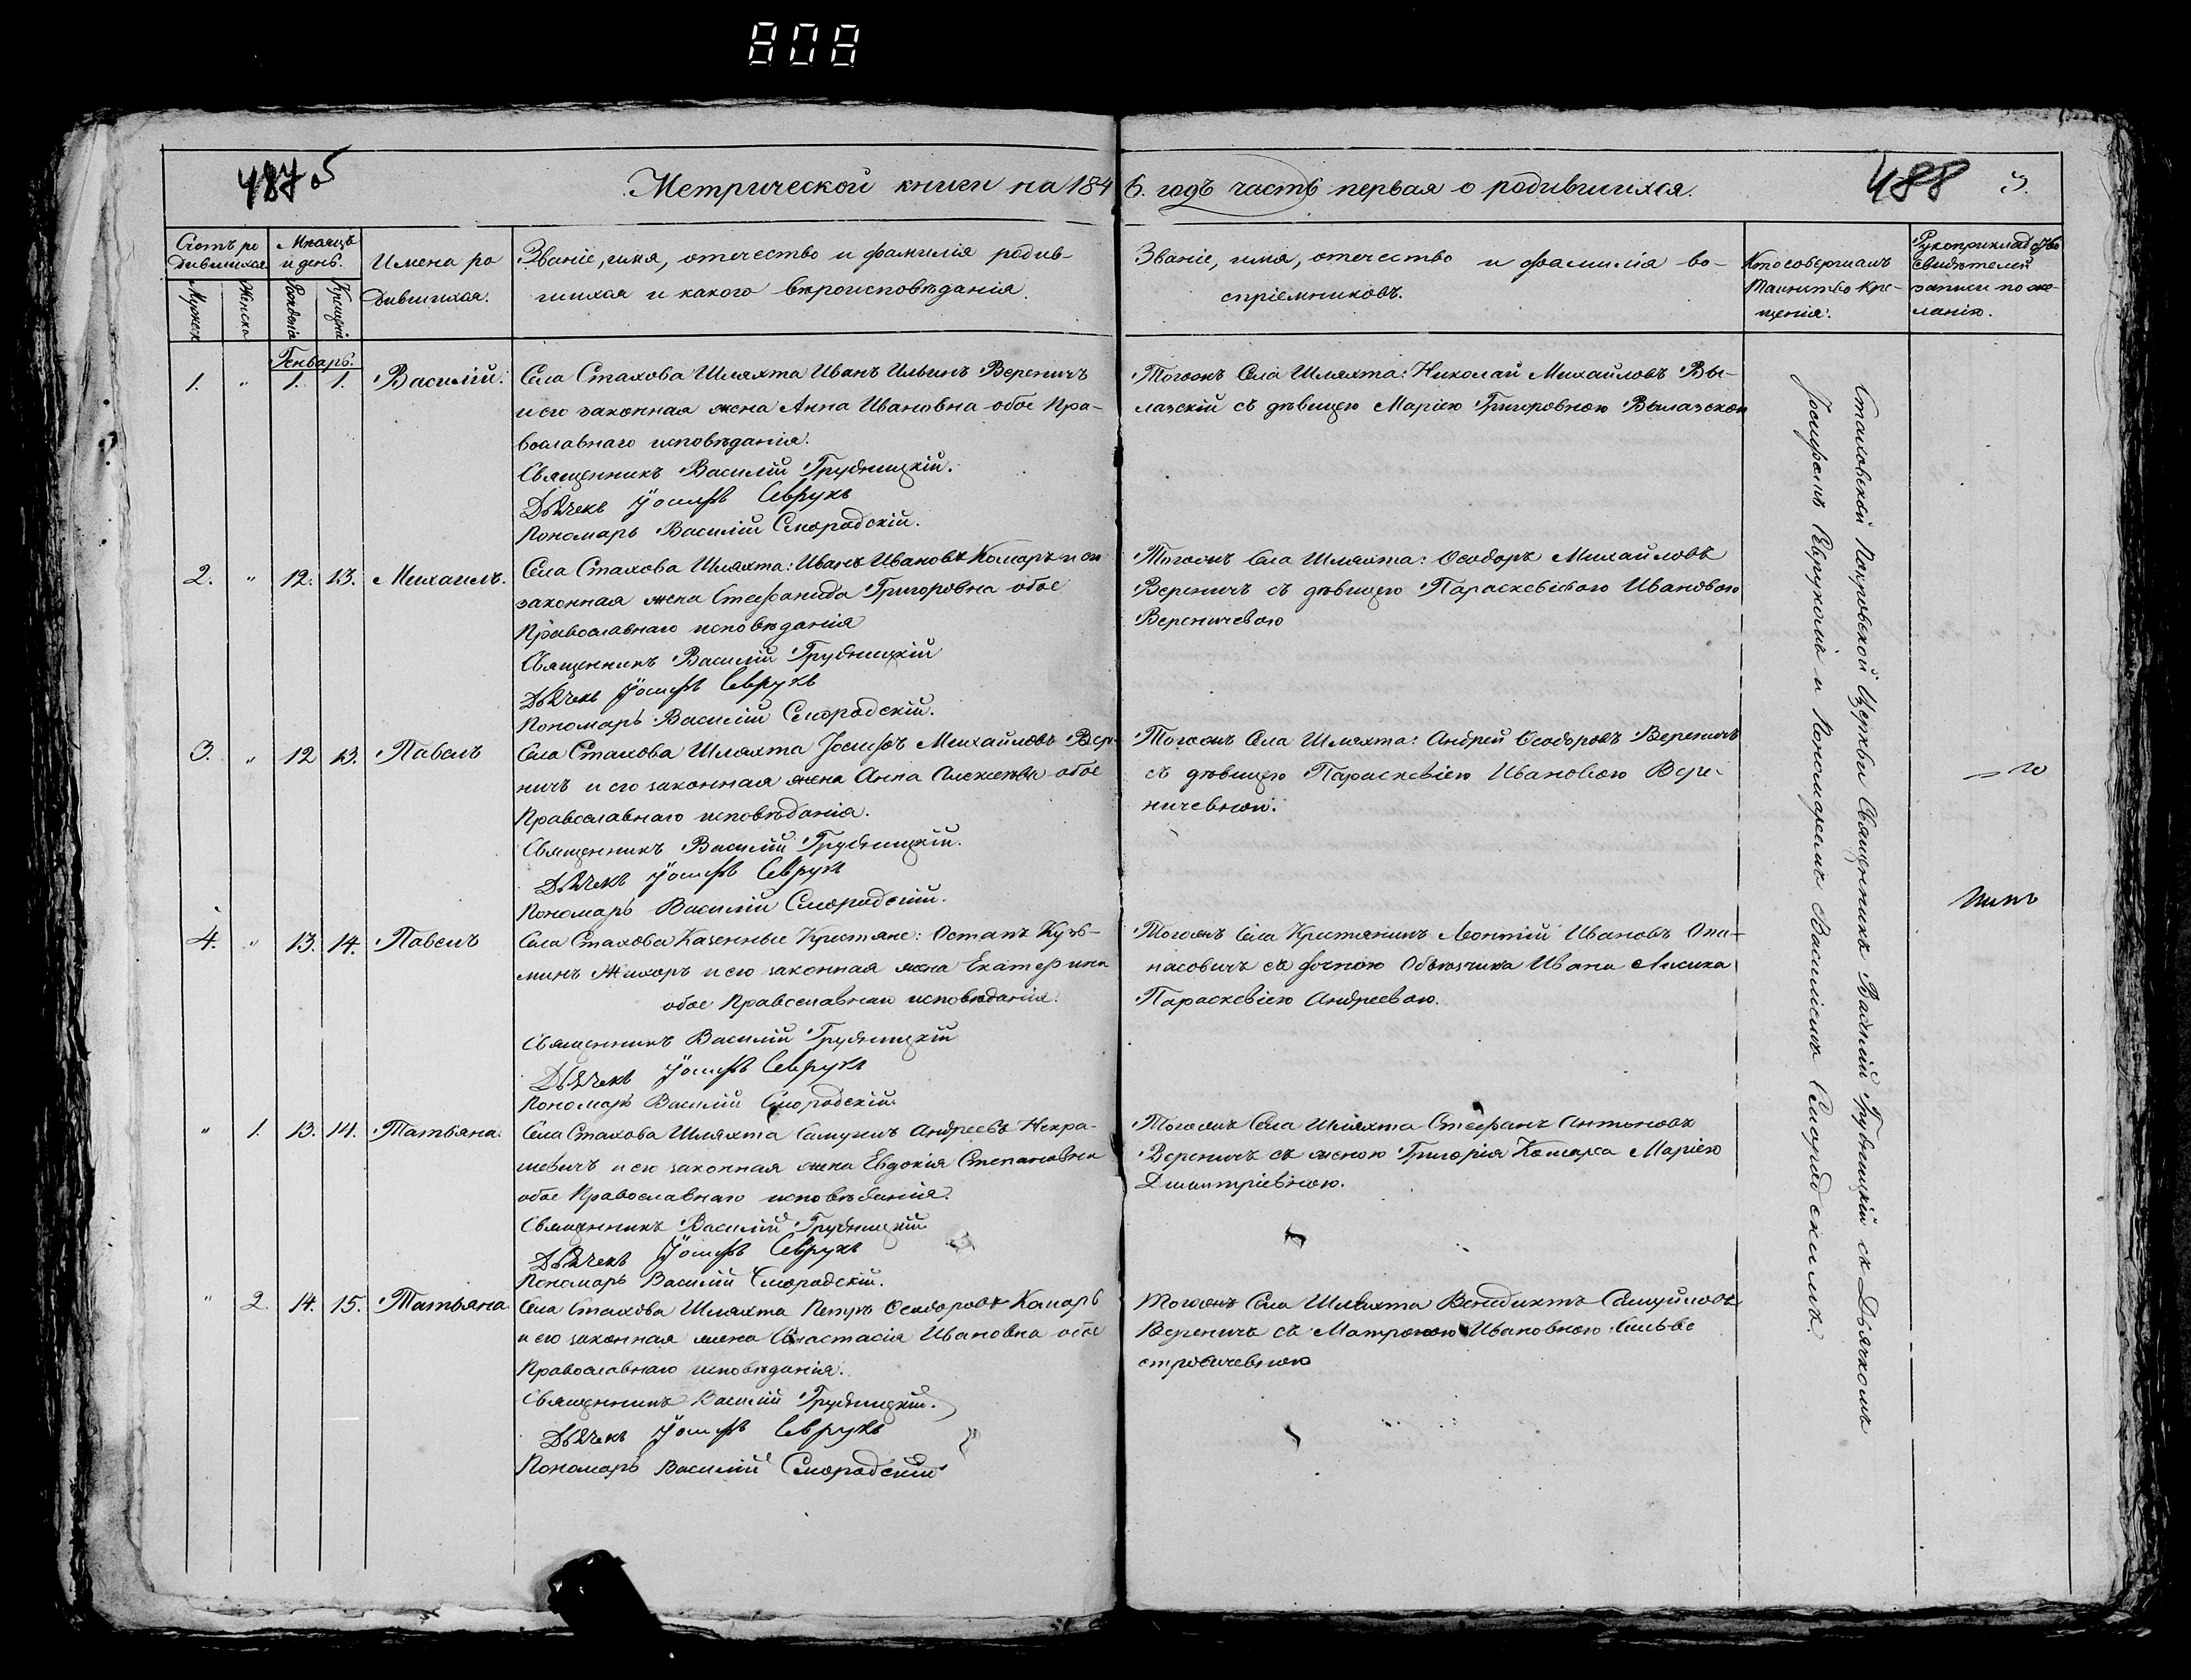 808
487об
Метрической книги на 1846. годъ часть первая о родившихся.
488
Счетъ ро
дившихся
Мѣсяцъ
и день.
Имена ро
дившихся.
Званіе, имя, отчество и фамилія родив-
шихся и какого вѣроисповѣданія.
Званіе, имя, отчество и фамилія во-
спріемниковъ.
Кто совершалъ
Таинство кре-
щенія.
Рукоприкладство
свидѣтелей
записи по же-
ланію.
Мужеск
Женска
Рожденія
Крещенія
Генварь.
1. " 1. 1. Василій.
Села Стахова Шляхта Иванъ Ильинъ Вереничъ
и его законная жена Анна Ивановна обое Пра-
вославнаго исповѣданія.
Священникъ Василій Грудницкій.
Дьячекъ Іосифъ Севрукъ
Пономарь Василій Смородскій.
Тогожъ Села Шляхта: Николай Михайловъ Вы-
лазскій съ дѣвицею Маріею Григоровною Вылазскою
2. " 12. 13. Михаилъ.
Села Стахова Шляхта: Иванъ Ивановъ Комаръ и он
законная жена Стефанида Григоровна обое
Православнаго исповѣданія
Священникъ Василій Грудницкій
Дьячекъ Іосифъ Севрукъ
Пономарь Василій Смородскій.
Тогожъ Села Шляхта: Ѳеодоръ Михайловъ
Вереничъ съ дѣвицею Параскевіею Ивановою
Вереничевою
3. " 12 13. Павелъ
Села Стахова Шляхта Іосифъ Михайловъ Вере-
ничъ и его законная жена Анна Алексѣева обое
Православнаго исповѣданія.
Священникъ Василій Грудницкій.
Дьячекъ Іосифъ Севрукъ
Пономарь Василій Смородскій.
Тогожъ Села Шляхта: Андрей Ѳеодоровъ Вереничъ
съ дѣвицею Параскевіею Ивановою Вере-
ничевною.
4. " 13. 14. Павелъ
Села Стахова Казенные Крестяне: Остапъ Кузь-
минъ Жихоръ и его законная жена Екатерина
обое Православнаго исповѣданія.
Священникъ Василій Грудницкій
Дьячекъ Іосифъ Севрукъ
Пономарь Василій Смородскій.
Тогожъ Села Крестянинъ Леонтій Ивановъ Опа-
насовичъ съ дочкою Объѣзчика Ивана Лисика
Параскевіею Андреевою.
" 1. 13. 14. Татьяна.
Села Стахова Шляхта Самуилъ Андреевъ Некра-
шевичъ и его законная жена Евдокія Степановна
обое Православнаго исповѣданія.
Священникъ Василій Грудницкій.
Дьячекъ Іосифъ Севрукъ
Пономарь Василій Смородскій.
Тогожъ Села Шляхта Стефанъ Антоновъ
Вереничъ съ женою Григорія Комара Маріею
Димитріевною.
" 2. 14. 15. Татьяна
Села Стахова Шляхта Петръ Ѳеодоровъ Комаръ
и его законная жена Анастасія Ивановна обое
Православнаго исповѣданія.
Священникъ Василій Грудницкій.
Дьячекъ Іосифъ Севрукъ
Пономарь Василій Смородскій
Тогожъ Села Шляхта Венедиктъ Самуиловъ
Вереничъ съ Матроною Ивановною Сильве
стровичевною
Стаховской Покровской Церкви Священникъ Василій Грудницкій съ Дьячкомъ
Іосифомъ Севрукомъ и Пономаремъ Василіемъ Смородскимъ